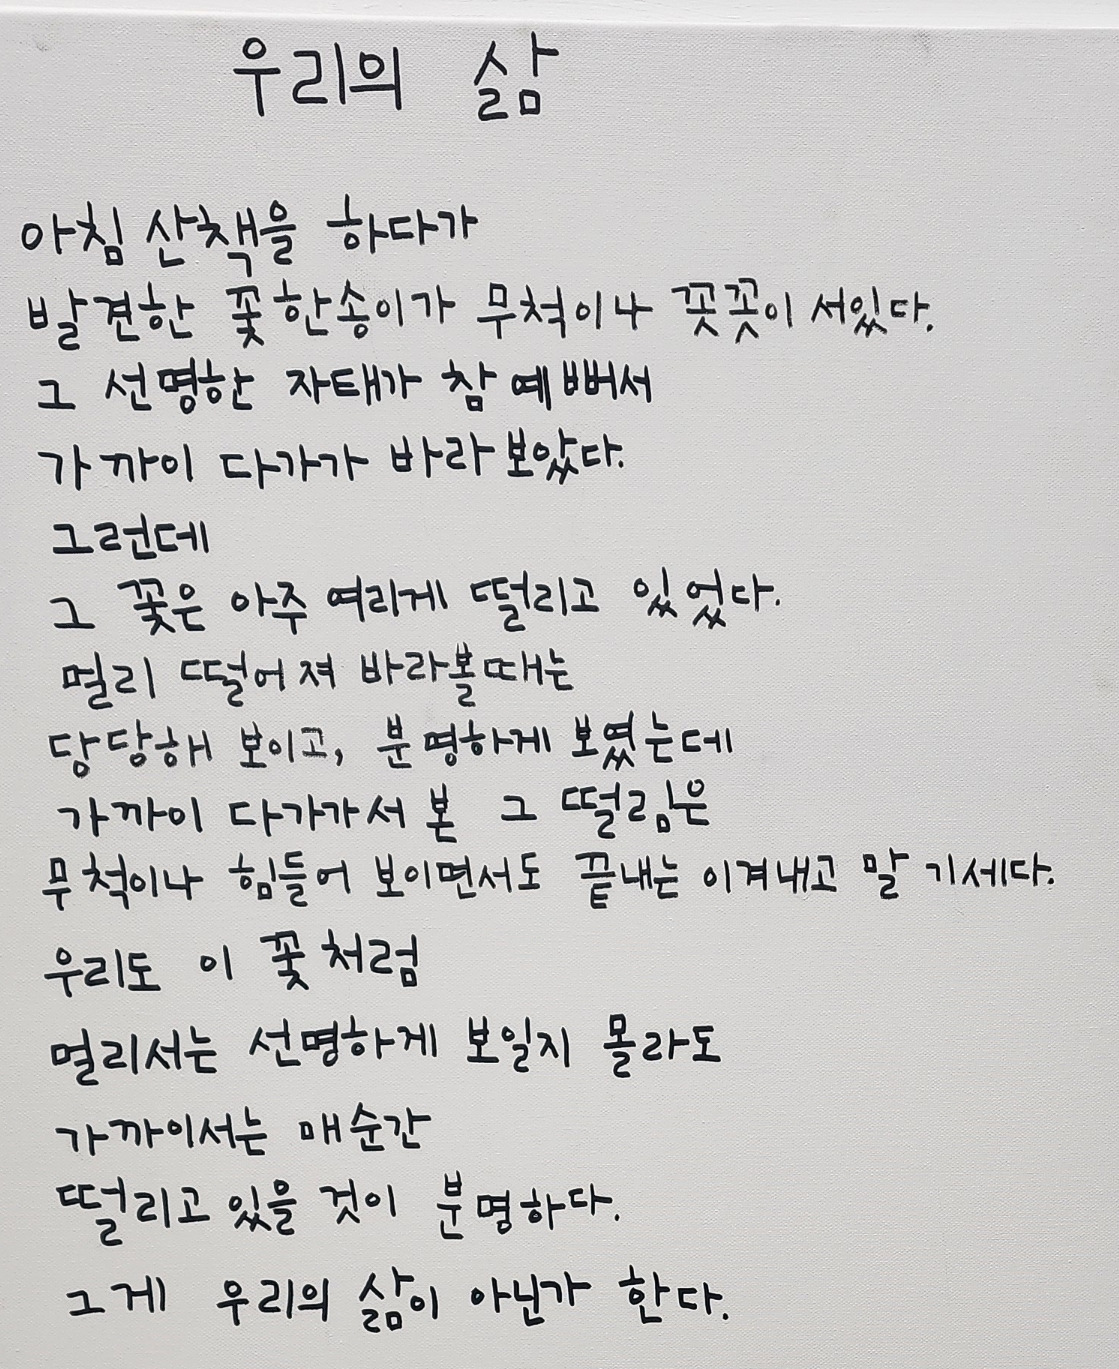 우리의 삶
아침 산책을 하다가
발견한 꽃한송이가 무척이나 꼿꼿이 서있다.
그 선명한 자태가 참 예뻐서
가까이 다가가 바라보았다.
그런데
그 꽃은 아주 여리게 떨리고 있었다.
멀리 떨어져 바라볼때는
당당해 보이고, 분명하게 보였는데
가까이 다가가서 본 그 떨림은
무척이나 힘들어 보이면서도 끝내는 이겨내고 말 기세다.
우리도 이 꽃처럼
멀리서는 선명하게 보일지 몰라도
가까이서는 매순간
떨리고 있을 것이 분명하다.
그게 우리의 삶이 아닌가 한다.